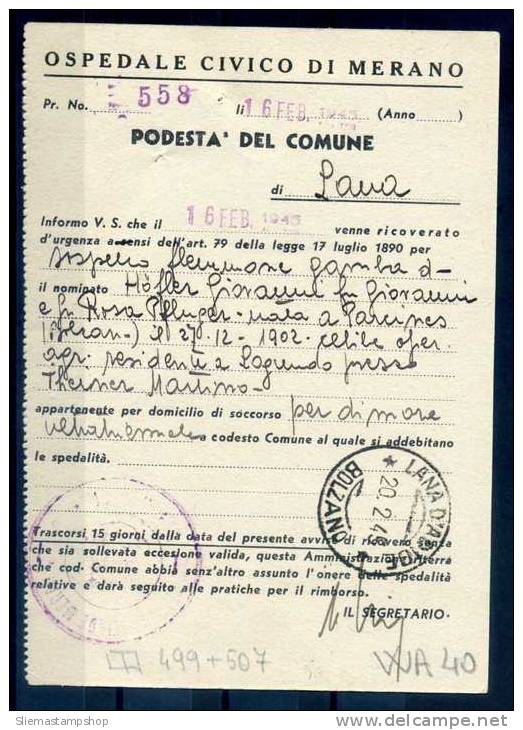 OSPEDALE CIVICO DI MERANO
Pr. No. 558 li 16 FEB. 1943 (Anno )
PODESTA' DEL COMUNE
di Lana
Informo V. S. che il 16 FEB. 1943 venne ricoverato
d'urgenza a sensi dell'art. 79 della legge 17 luglio 1890 per
sospetto flemmone gamba d-
il nominato Höfler Giovanni fu Giovanni
e fu Rosa Pfluger - nato a Parcines
(Meran-) il 27-12-1902 celibe oper.
agr. residente a Lagundo presso
Theiner Martino-
appartenente per domicilio di soccorso per dimora
a codesto Comune al quale si addebitano
le spedalità.
LANA D'ADIGE
BOLZANO
20.2.43
Trascorsi 15 giorni dalla data del presente avviso di ricovero senza
che sia sollevata eccesione valida, questa Amministrazione riterrà
che cod. Comune abbia senz'altro assunto l'onere delle spedalità
relative e darà seguito alle pratiche per il rimborso.
IL SEGRETARIO
499+507
40
Sliemastampshop
www.delcampe.net